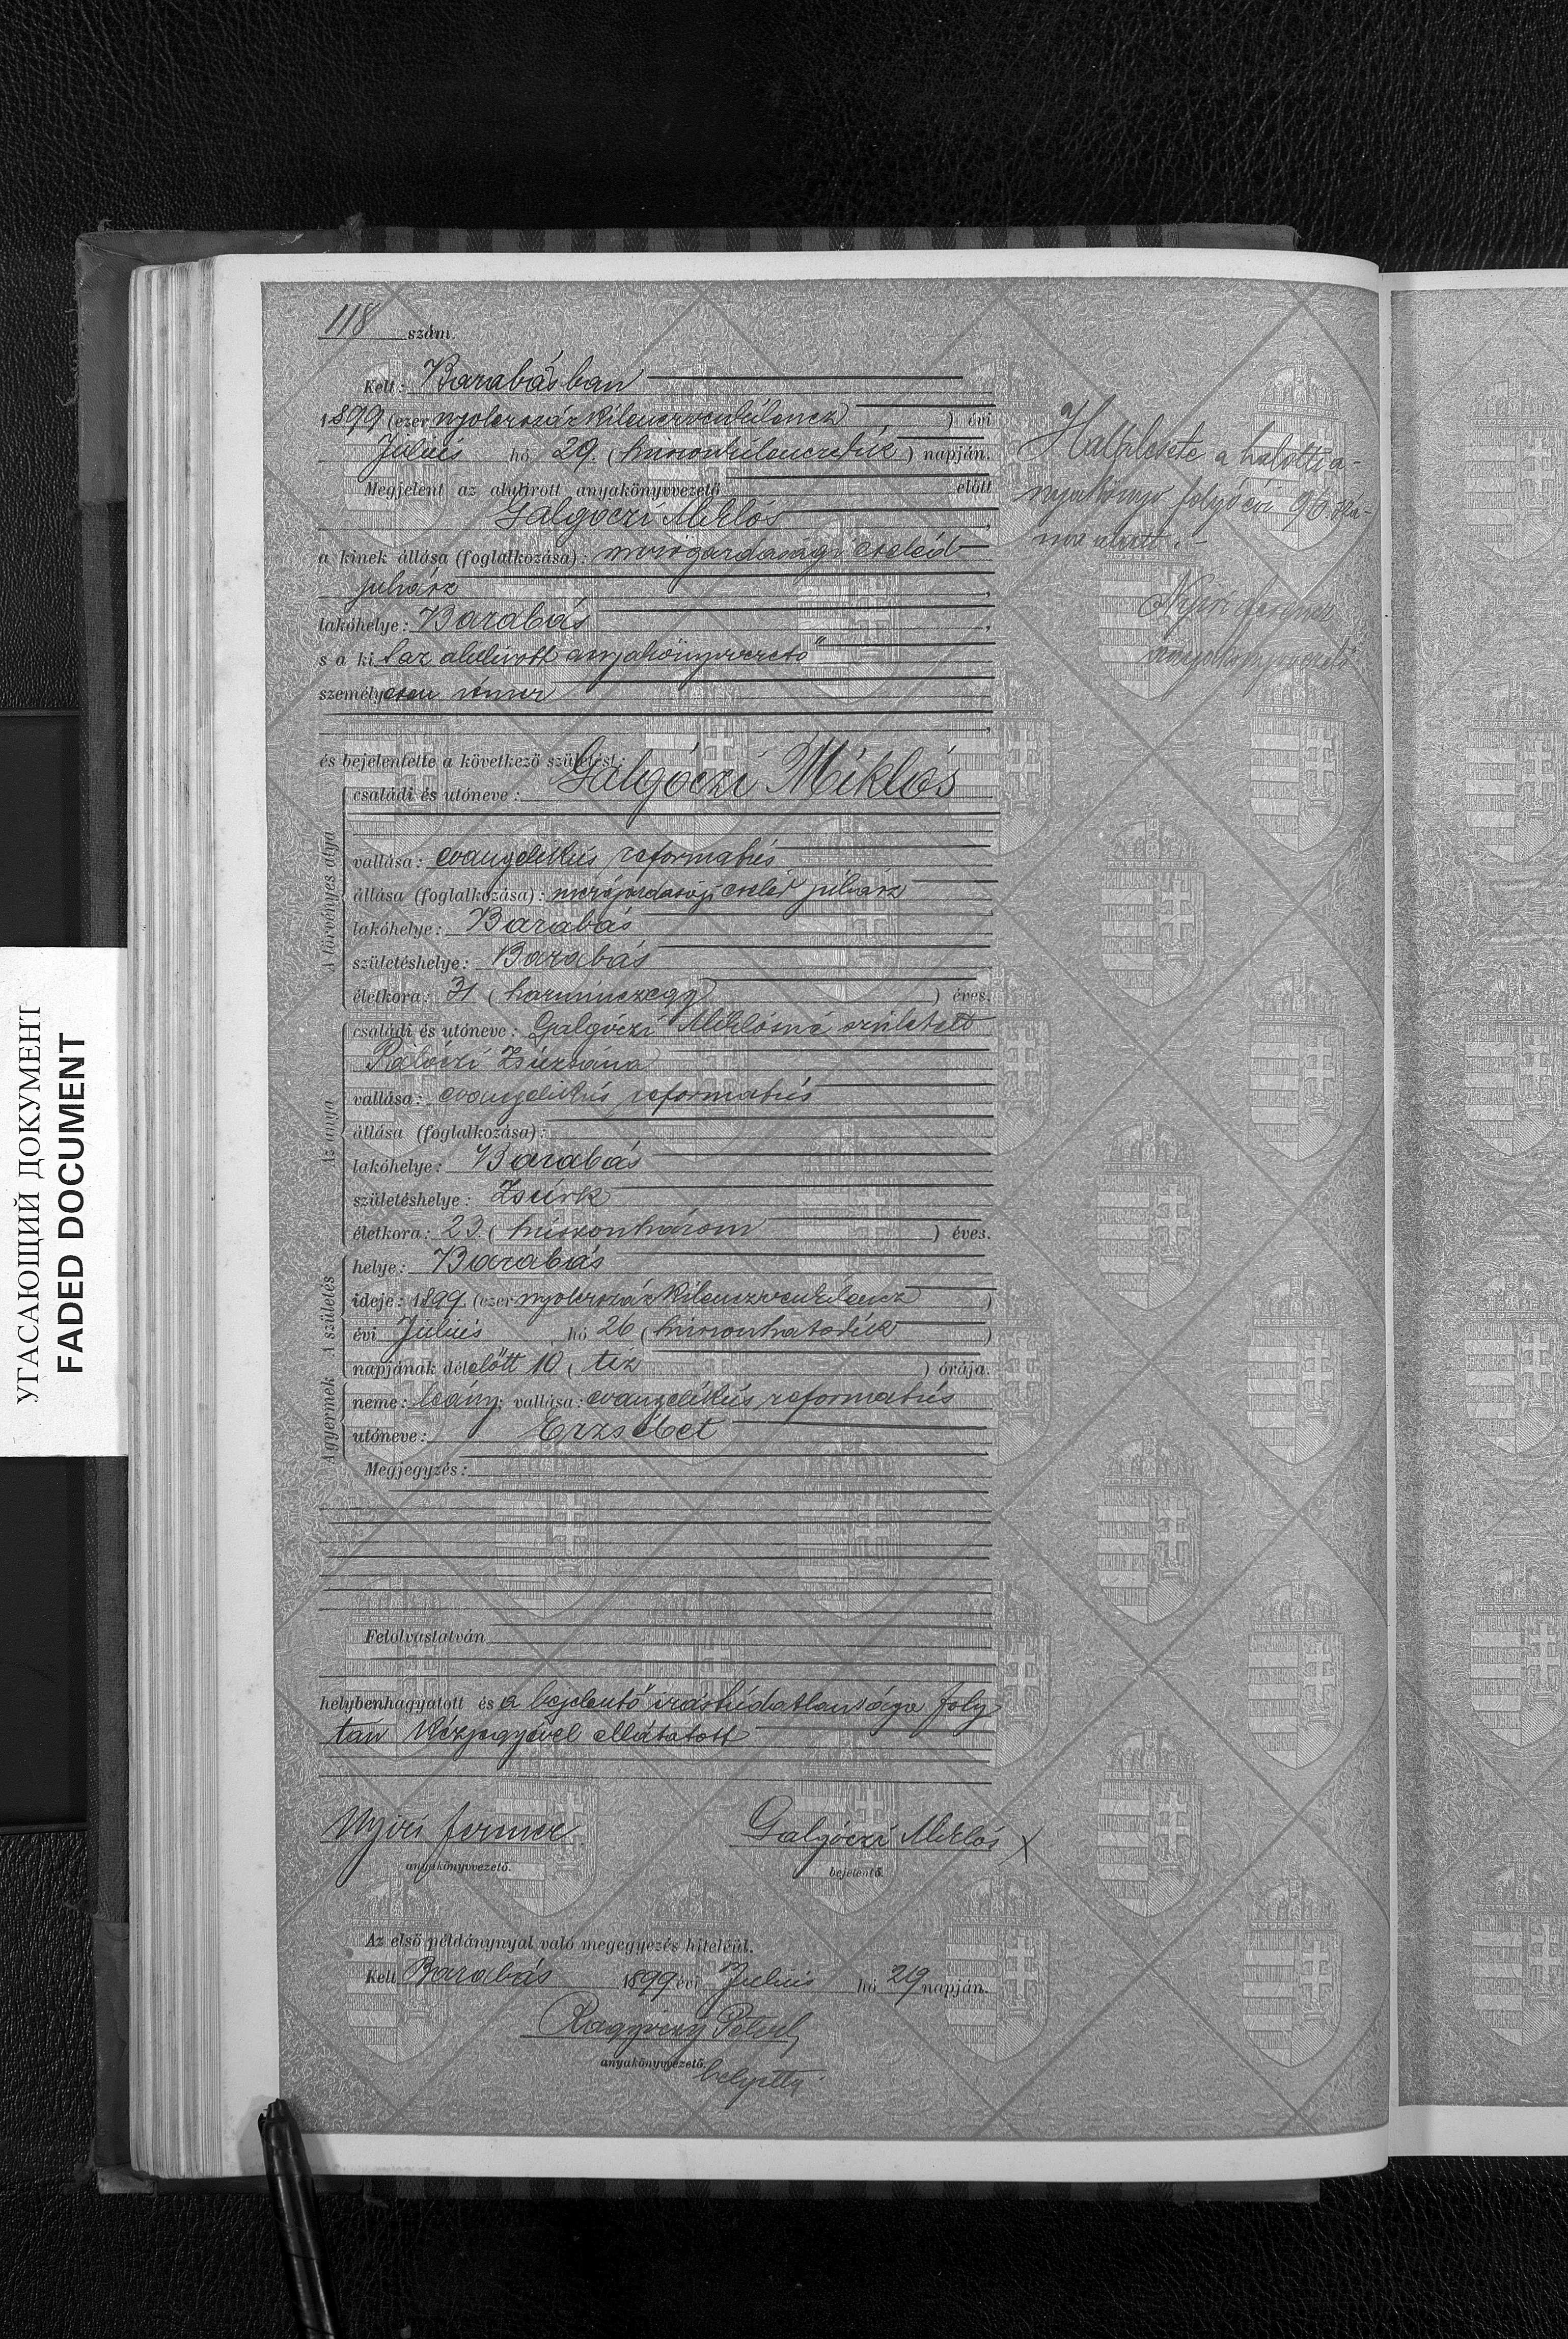 118 szám.
Kelt: Barabásban
1899 (ezernyolcszázkilenczvenkilencz) évi
Július hó 29. (huszonkilenczedik) napján.
Megjelent az alulirott anyakönyvvezető előtt
Galgóczi Miklós,
a kinek állása (foglalkozása): mezőgazdasági cseléd
juhász,
lakóhelye: Barabás,
s a kit az alulirott anyakönyvvezető
személyesen ismer
és bejelentette a következő születést:
A törvényes atya
családi és utóneve: Galgóczi Miklós
vallása: evangelikus reformatus
állása (foglalkozása): mezőgazdasági cseléd juhász
lakóhelye: Barabás
születéshelye: Barabás
életkora: 31 (harminczegy) éves.
Az anya
családi és utóneve: Galgóczi Miklósné született
Palóczi Zsuzsána
vallása: evangelikus reformatus
állása (foglalkozása):
lakóhelye: Barabás
születéshelye: Zsurk
életkora: 23 (huszonhárom) éves.
A születés
helye: Barabás
ideje: 1899 (ezernyolcszázkilenczvenkilencz)
évi Július hó 26 (huszonhatodik)
napjának délelőtt 10 (tiz) órája.
A gyermek
neme: leány; vallása: evangelikus reformatus
utóneve: Erzsébet
Megjegyzés:
Felolvastatván
helybenhagyatott és a bejelentő irástudatlansága foly
tán kézjegyével ellátatott
Nyiri ferencz Galgóczi Miklós X
anyakönyvvezető. bejelentő.
Az első példánynyal való megegyezés hiteléül.
Kelt Barabás 1899 évi Július hó 29 napján.
anyakönyvvezető.
helyettes
Halálesete a halotti a-
nyakönyv folyóévi 96 szá-
ma alatt.
Nyiri ferencz
anyakönyvvezető
УГАСАЮЩИЙ ДОКУМЕНТ
FADED DOCUMENT